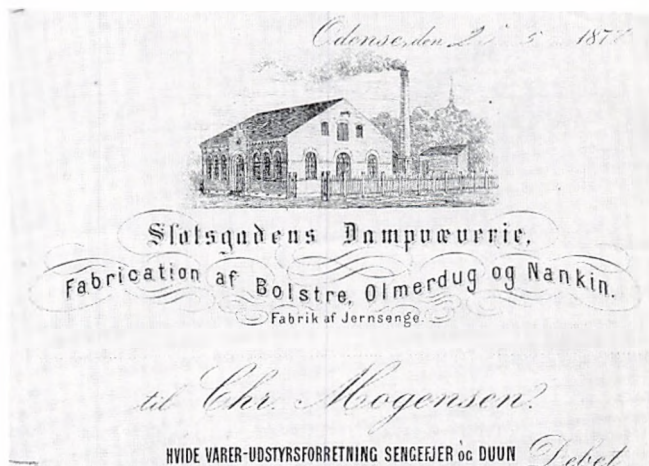 Odense, den 2 5 187
Slotsgadens Dampvæverie,
Fabrication af Bolstre, Olmerdug og Nankin.
Fabrik af Jernsenge.
til Chr. Mogensen.
HVIDE VARER-UDSTYRSFORRETNING SENGEFJER og DUUN Debet